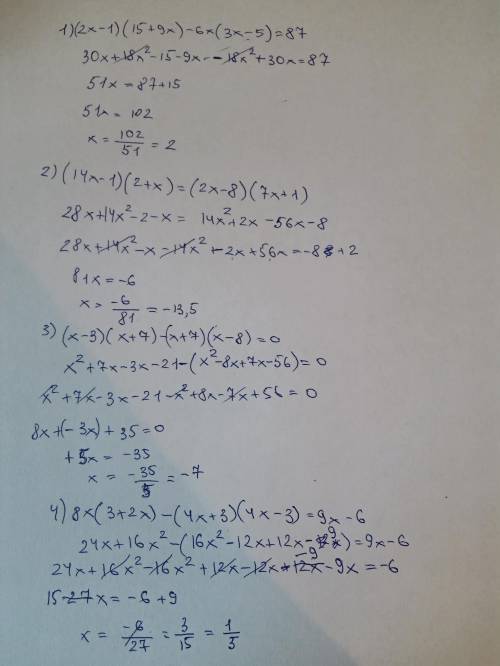 1) (2x-1)(15+9x)-6x(3x-5)=87
30x+18x²-15-9x-18x²+30x=87
51x=87+15
51x=102
x=102/51=2
2) (14x-1)(2+x)=(2x-8)(7x+1)
28x+14x²-2-x=14x²+2x-56x-8
28x+14x²-x-14x²-2x+56x=-8+2
81x=-6
x=-6/81=-13,5
3) (x-3)(x+7)-(x+7)(x-8)=0
x²+7x-3x-21-(x²-8x+7x-56)=0
x²+7x-3x-21-x²+8x-7x+56=0
8x+(-3x)+35=0
+5x=-35
x=-35/5=-7
4) 8x(3+2x)-(4x+3)(4x-3)=9x-6
24x+16x²-(16x²-12x+12x-9)=9x-6
24x+16x²-16x²+12x-12x-9-9x=-6
15-27x=-6+9
x=-6/27=3/15=1/5